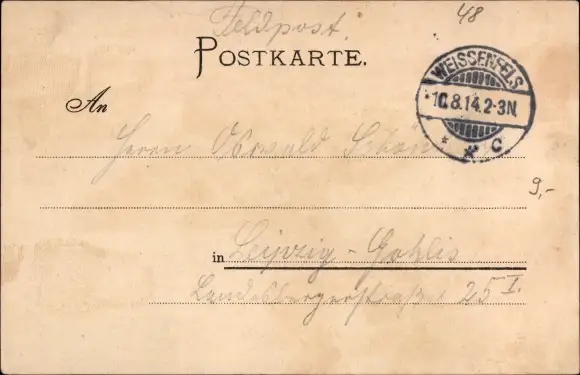 Feldpost.
48
POSTKARTE.
WEISSENFELS
10.8.14.2-3N.
* * C
An
Herrn Oswald Schön
9,-
in Leipzig-Gohlis
Landsbergerstraße 25 I.